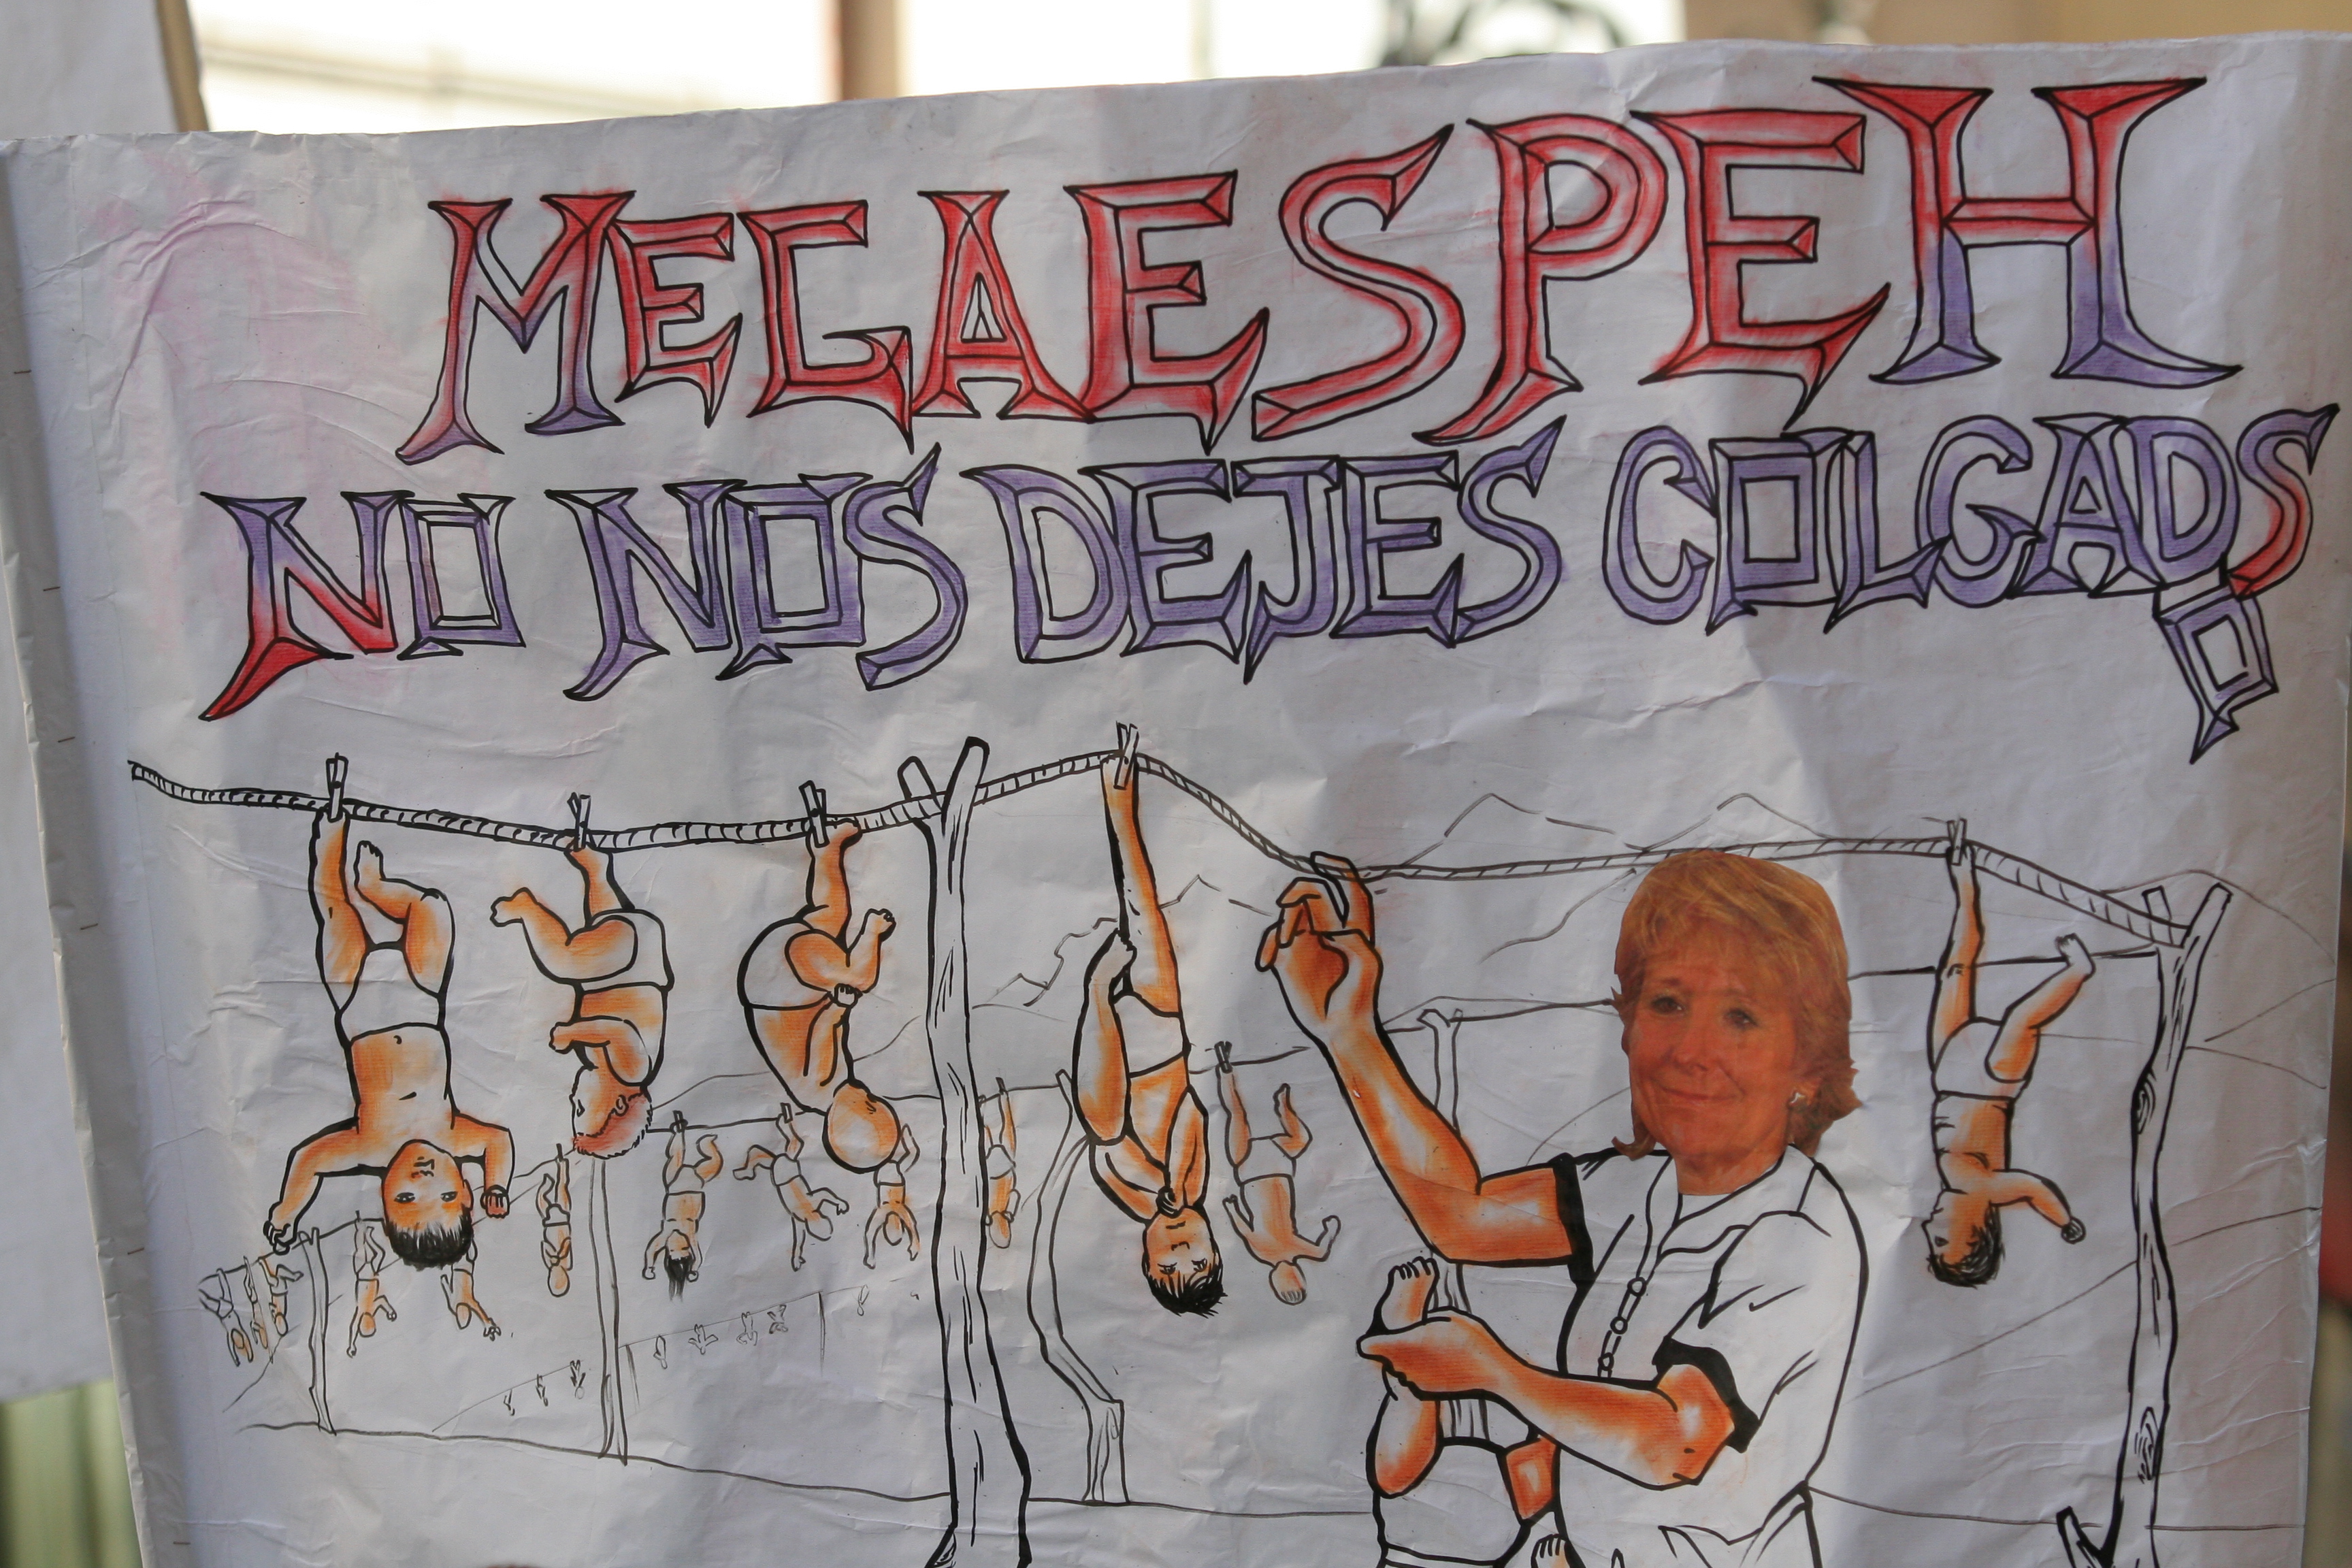 MEGAESPEH
NO NOS DEJES COLGADOS